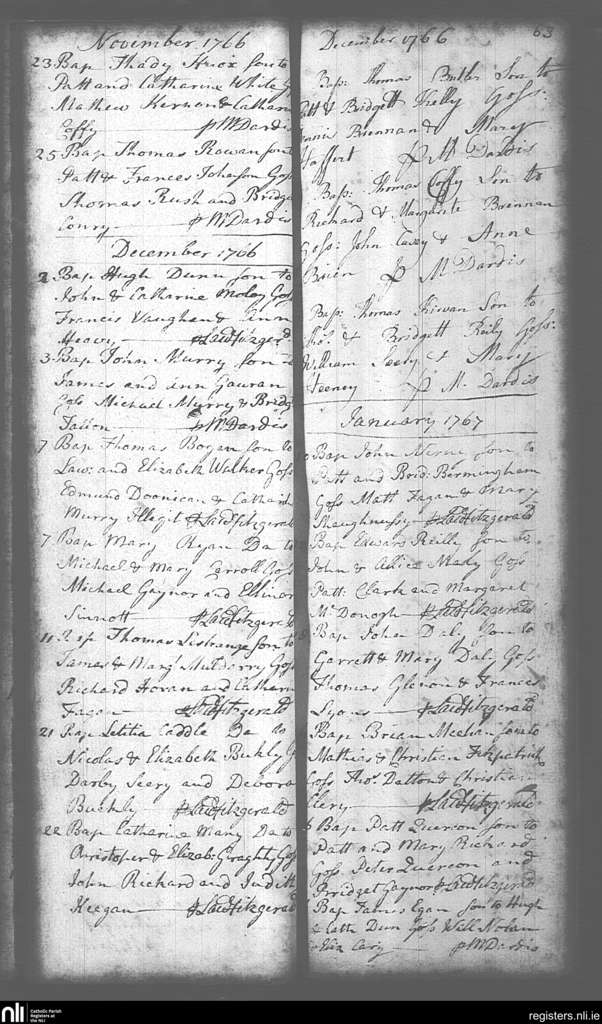 November 1766
23 Bap Thady Knox son to
Patt and Catharine White G
Mathew Kernon & Catharn
Coffy P MDardis
25 Bap Thomas Rowan son to
Patt & Frances Johnson Goss
Thomas Rush and Bridge
Conry P MDardis
December 1766
2 Bap Hugh Dunn son to
John & Catharine Moley Goss
Francis Vaughen & Ann
Heavy P Laufitzgerd
3 Bap John Murry son
James and Ann Gawran
Goss Michael Murry & Bridg
Fallon P MDardis
7 Bap Thomas Bogan son to
Law: and Elizabeth Walker Goss
Edmund Doonican & Catharin
Murry Illegit P Laufitzgerald
7 Bap Mary Ryan Da to
Michael & Mary Carroll Goss
Michael Gaynor and Ellinor
Sinnott P Laufitzgerald
11 Bap Thomas Listrange son to
James & Marg: Mulderry Goss
Richard Horan and Cathern
Fagan P Laufitzgerald
21 Bap Letitia Caddle Da to
Nicolas & Elizabeth Buckly G
Darby Seery and Devora
Buckly P Laufitzgerald
22 Bap Catharine Mary Da to
Christopher & Elizab: Geraghty Goss
John Richard and Judith
Keegan P Laufitzgerald
63
December 1766
Bap: Thomas Butler Son to
Patt & Bridgett Kelly Goss:
Brennan & Mary
P M Dardis
Bap: Thomas Coffy Son to
Richard & Margarite Brennan
Goss: John Casey & Anne
Brien P M Dardis
Bap: Thomas Kirwan Son to
Tho: & Bridgett Reily Goss:
William Seely & Mary
Feeney P M. Dardis
January 1767
Bap John son to
Patt and Brid: Bermingham
Goss Matt Fagan & Mary
Shaughnessy P Laufitzgerald
Bap Edward Reilly son to
John & Alice Mealy Goss
Patt: Clark and Margaret
McDonogh P Laufitzgerald
Bap John Daly son to
Garrett & Mary Daly Goss
Thomas Glenon & Frances
Lyons P Laufitzgerald
Bap Brian Meehan son to
Mathias & Christian Fitzpatrick
Goss Tho: Datton & Christian
Clery P Laufitzgerald
Bap Patt Quercon son to
Patt and Mary Richard
Goss Peter Quercon and
Bridget Gaynor P Laufitzgerald
Bap James Egan son to Hugh
& Cath Dunn Goss Will Nolan
& Eliz Cary P MDardis
nli
Catholic Parish
Registers at
the NLI
registers.nli.ie